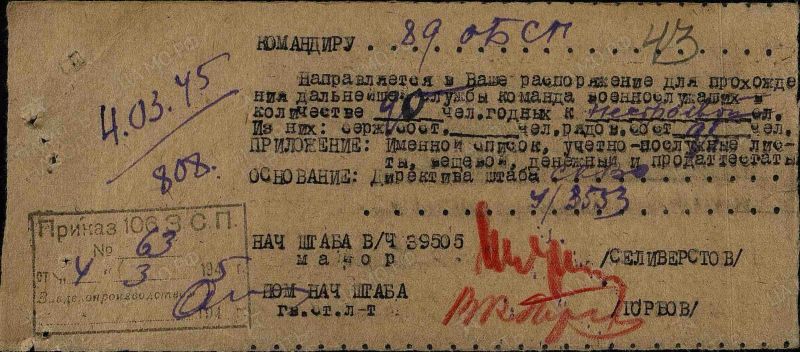 КОМАНДИРУ . . . 89 ОБСП . . . 43
Направляется в Ваше распоряжение для прохожде
ния дальнейшей службы команда военнослужащих в
количестве 90 чел.годных к нестроевой сл.
Из них: серж.сост. чел.рядов.сост чел.
ПРИЛОЖЕНИЕ: Именной список, учетно-послужные лис-
ты, вещевой, денежный и продаттестаты
ОСНОВАНИЕ: Директива штаба
4/3553
4.03.45
808.
Приказ 106 З.С.П.
№ 63
от „4" 3 1945 г.
В з.делопроизводства
194 г.
НАЧ ШТАБА В/Ч 39505
майор /СЕЛИВЕРСТОВ/
ПОМ НАЧ ШТАБА
гв.ст.л-т